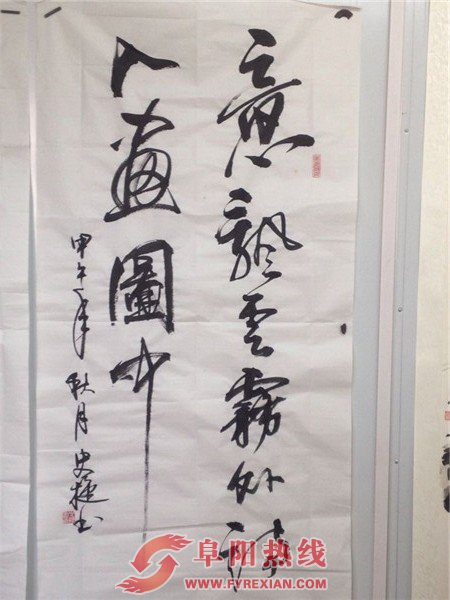 意飄雲霧外詩
入畫圖中
甲午年秋月史捷书
阜阳热线
WWW.FYREXIAN.COM